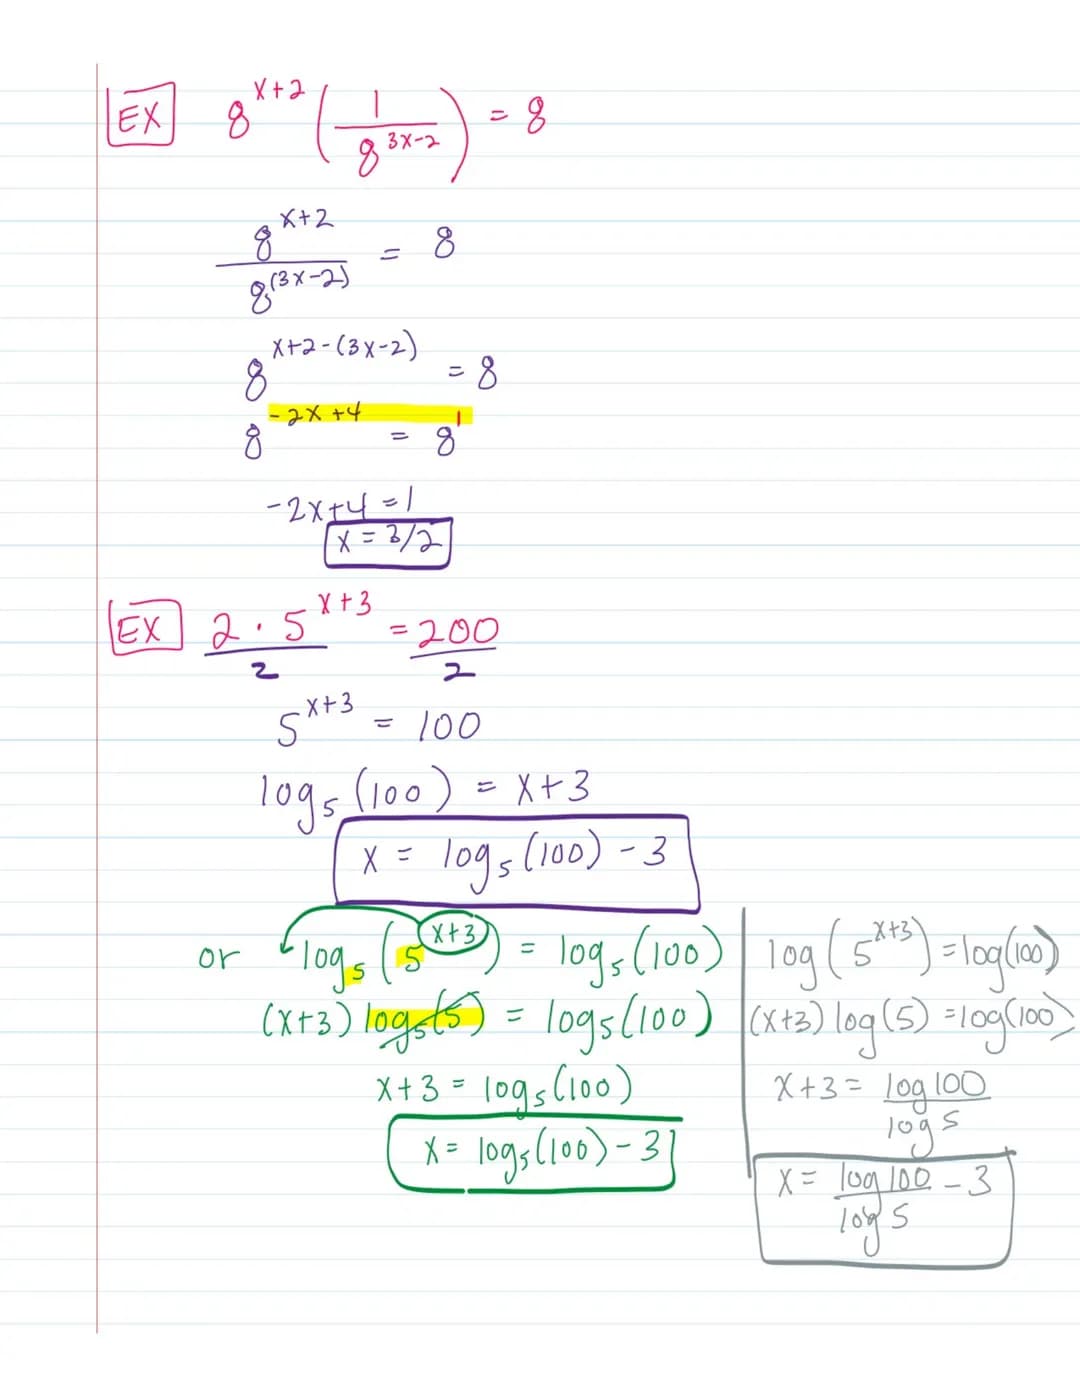 EX 8^(x+2) (1/8^(3x-2)) = 8
8^(x+2) / 8^((3x-2)) = 8
8^(x+2-(3x-2)) = 8
8^(-2x+4) = 8^1
-2x+4 = 1
x = 3/2
EX 2 · 5^(x+3) / 2 = 200 / 2
5^(x+3) = 100
log₅(100) = x+3
x = log₅(100) - 3
or log₅(5^(x+3)) = log₅(100)
(x+3) log₅(5) = log₅(100)
x+3 = log₅(100)
x = log₅(100) - 3
log(5^(x+3)) = log(100)
(x+3) log(5) = log(100)
x+3 = log 100 / log 5
x = log 100 / log 5 - 3